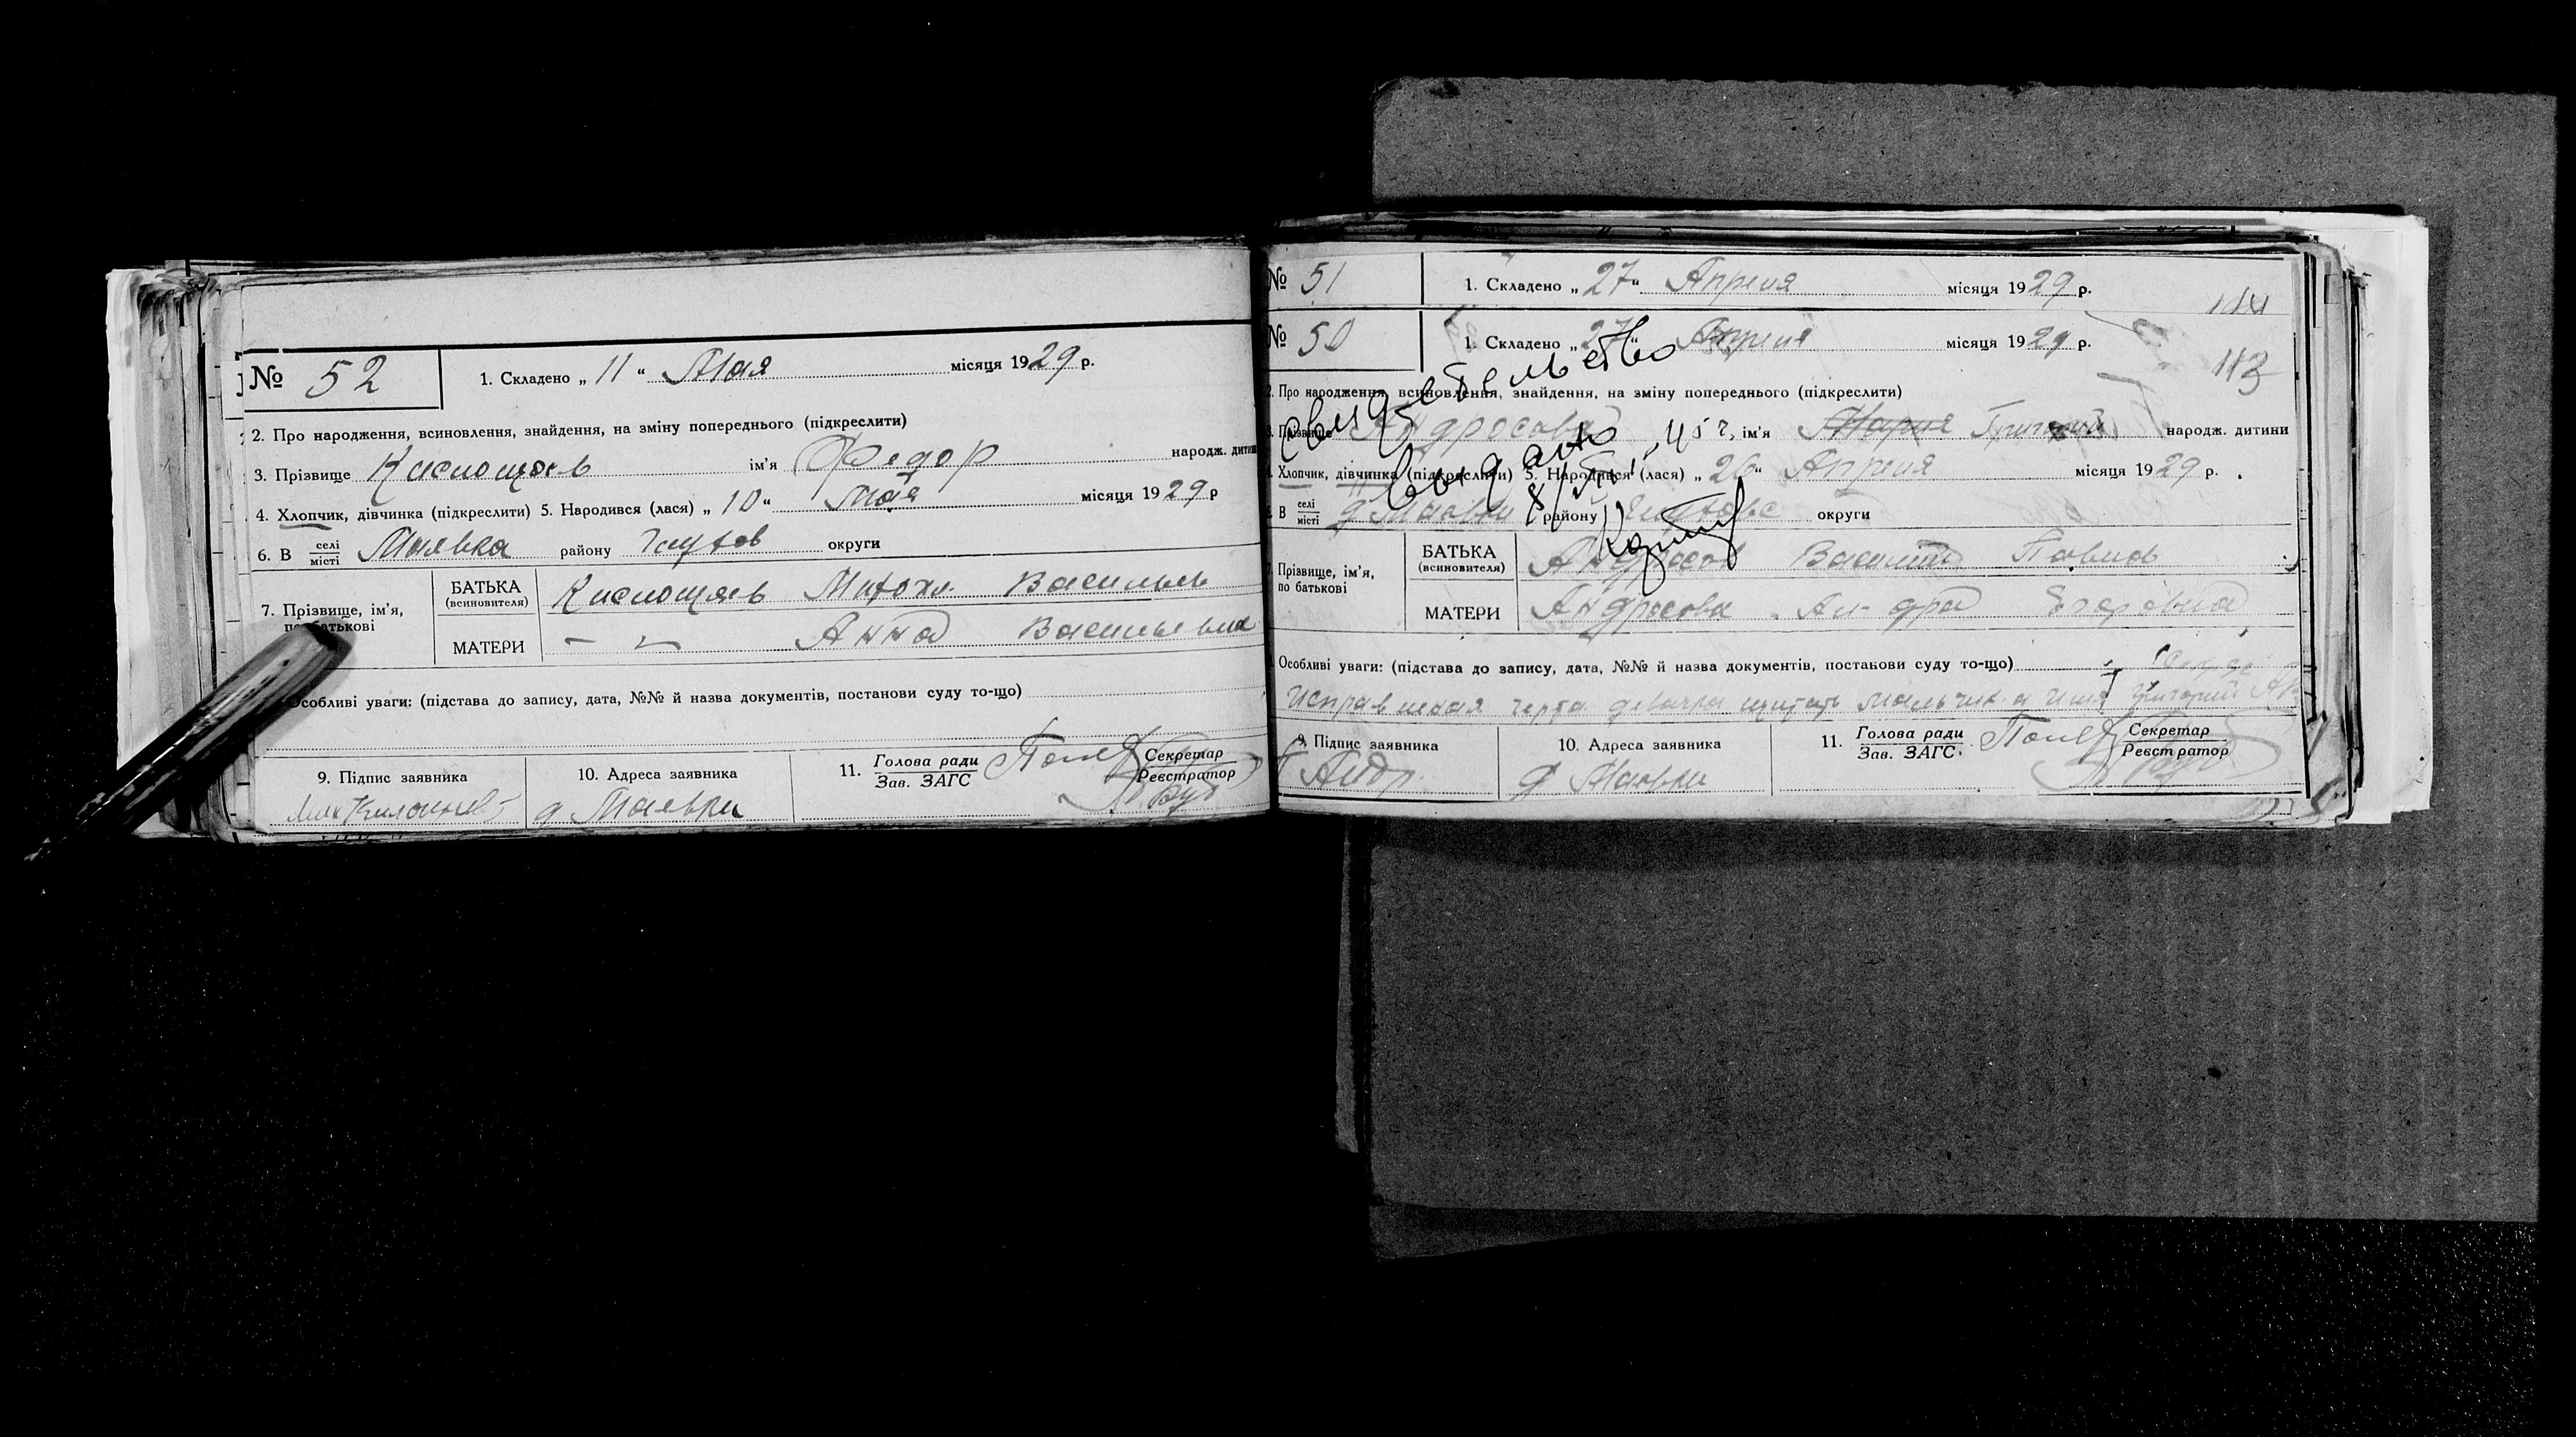 № 52
1. Складено „ 11 “ Мая місяця 1929 р.
2. Про народження, всиновлення, знайдення, на зміну попереднього (підкреслити)
3. Прізвище Кислощаев ім'я Федор народж. дитини
4. Хлопчик, дівчинка (підкреслити) 5. Народився (лася) „ 10 “ Мая місяця 1929 р
6. В селі місті Маявка району округи
7. Прізвище, ім'я, по батькові
БАТЬКА (всиновителя) Кислощаев Василье
МАТЕРИ — „ — Анна Васильевна
Особливі уваги: (підстава до запису, дата, №№ й назва документів, постанови суду то-що)
9. Підпис заявника
10. Адреса заявника д Маевки
11. Голова ради Зав. ЗАГС
Секретар Реєстратор
№ 51
1. Складено „ 27 “ Апреля місяця 1929 р.
114
№ 50
1. Складено „ 27 “ Апреля місяця 1929 р.
113
2. Про народження, всиновлення, знайдення, на зміну попереднього (підкреслити)
3. Прізвище Андросова ім'я Мария Григорий народж. дитини
4. Хлопчик, дівчинка (підкреслити) 5. Народився (лася) „ 26 “ Апреля місяця 1929 р.
6. В селі місті д Маевки району округи
свидетельство
выдано
7. Прізвище, ім'я, по батькові
БАТЬКА (всиновителя) Андросов Василий Павлов
МАТЕРИ Андросова Ал-дра Егоровна
Особливі уваги: (підстава до запису, дата, №№ й назва документів, постанови суду то-що)
черта девочка щитать мальчик а имя Григорий
9. Підпис заявника Андр.
10. Адреса заявника д Маевки
11. Голова ради Зав. ЗАГС.
Секретар Реєстратор